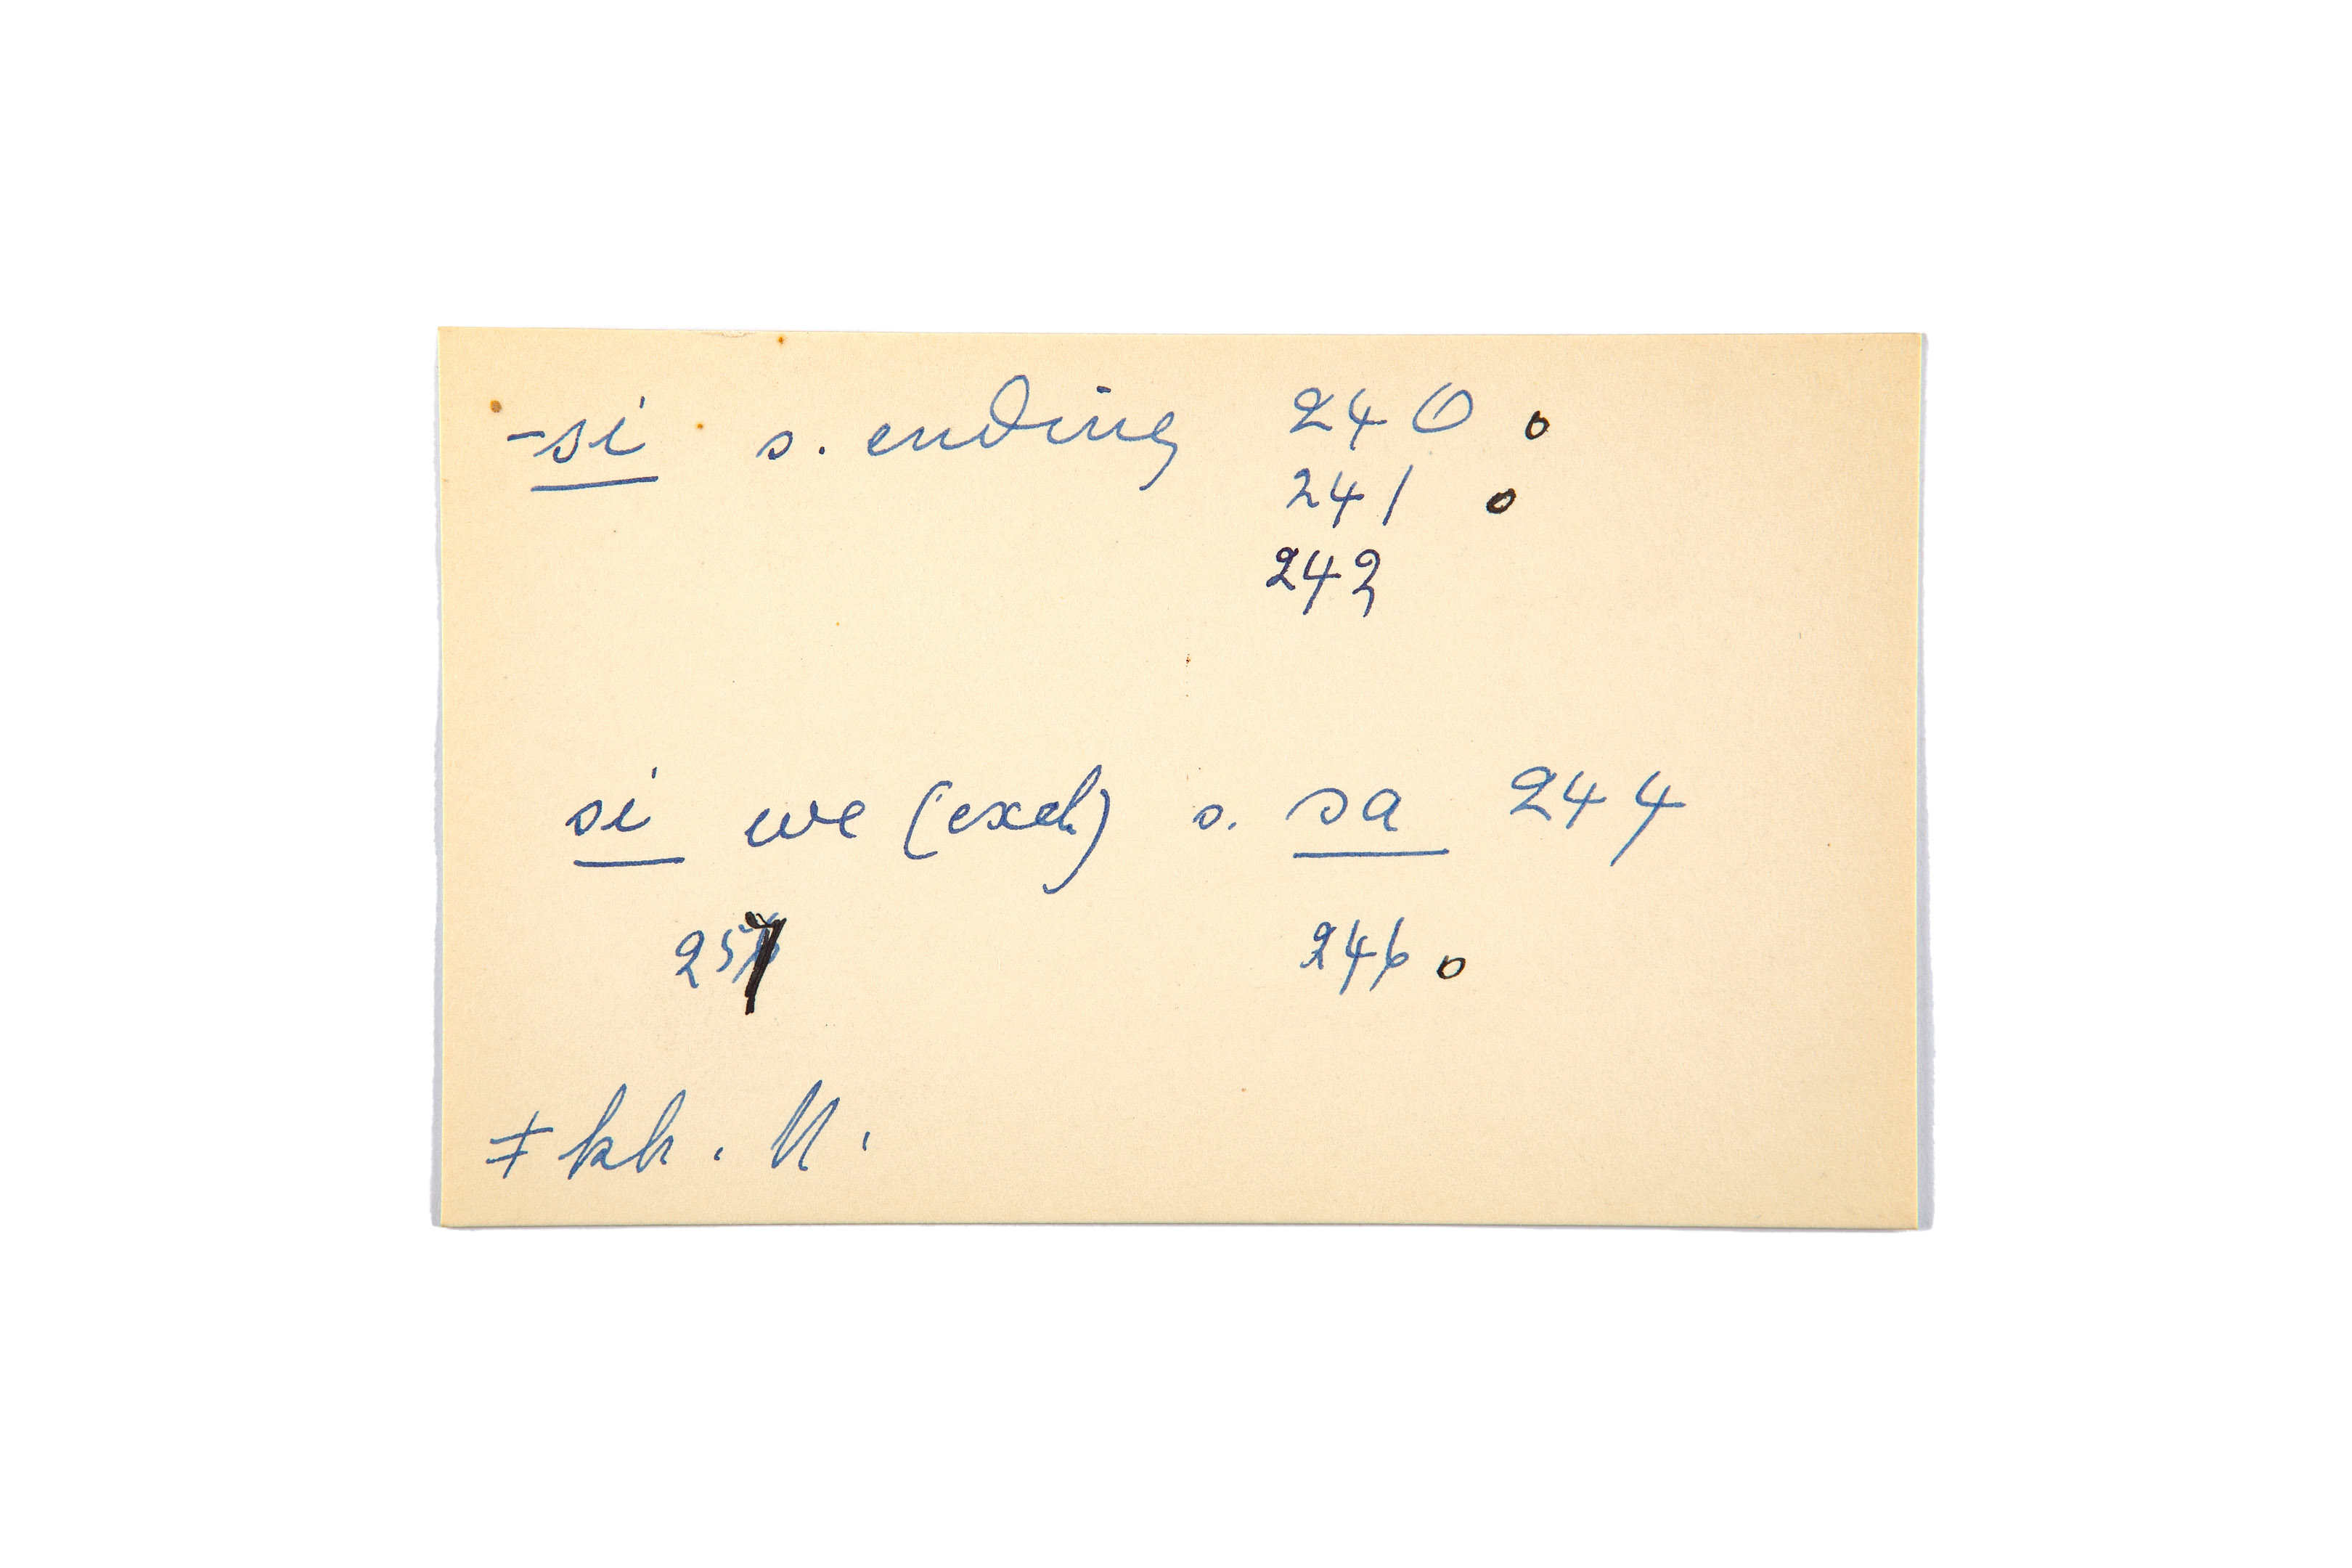 -si s. ending 240 o
241 o
242
si we (excl) s. sa 244
257 246 o
≠kh. N.